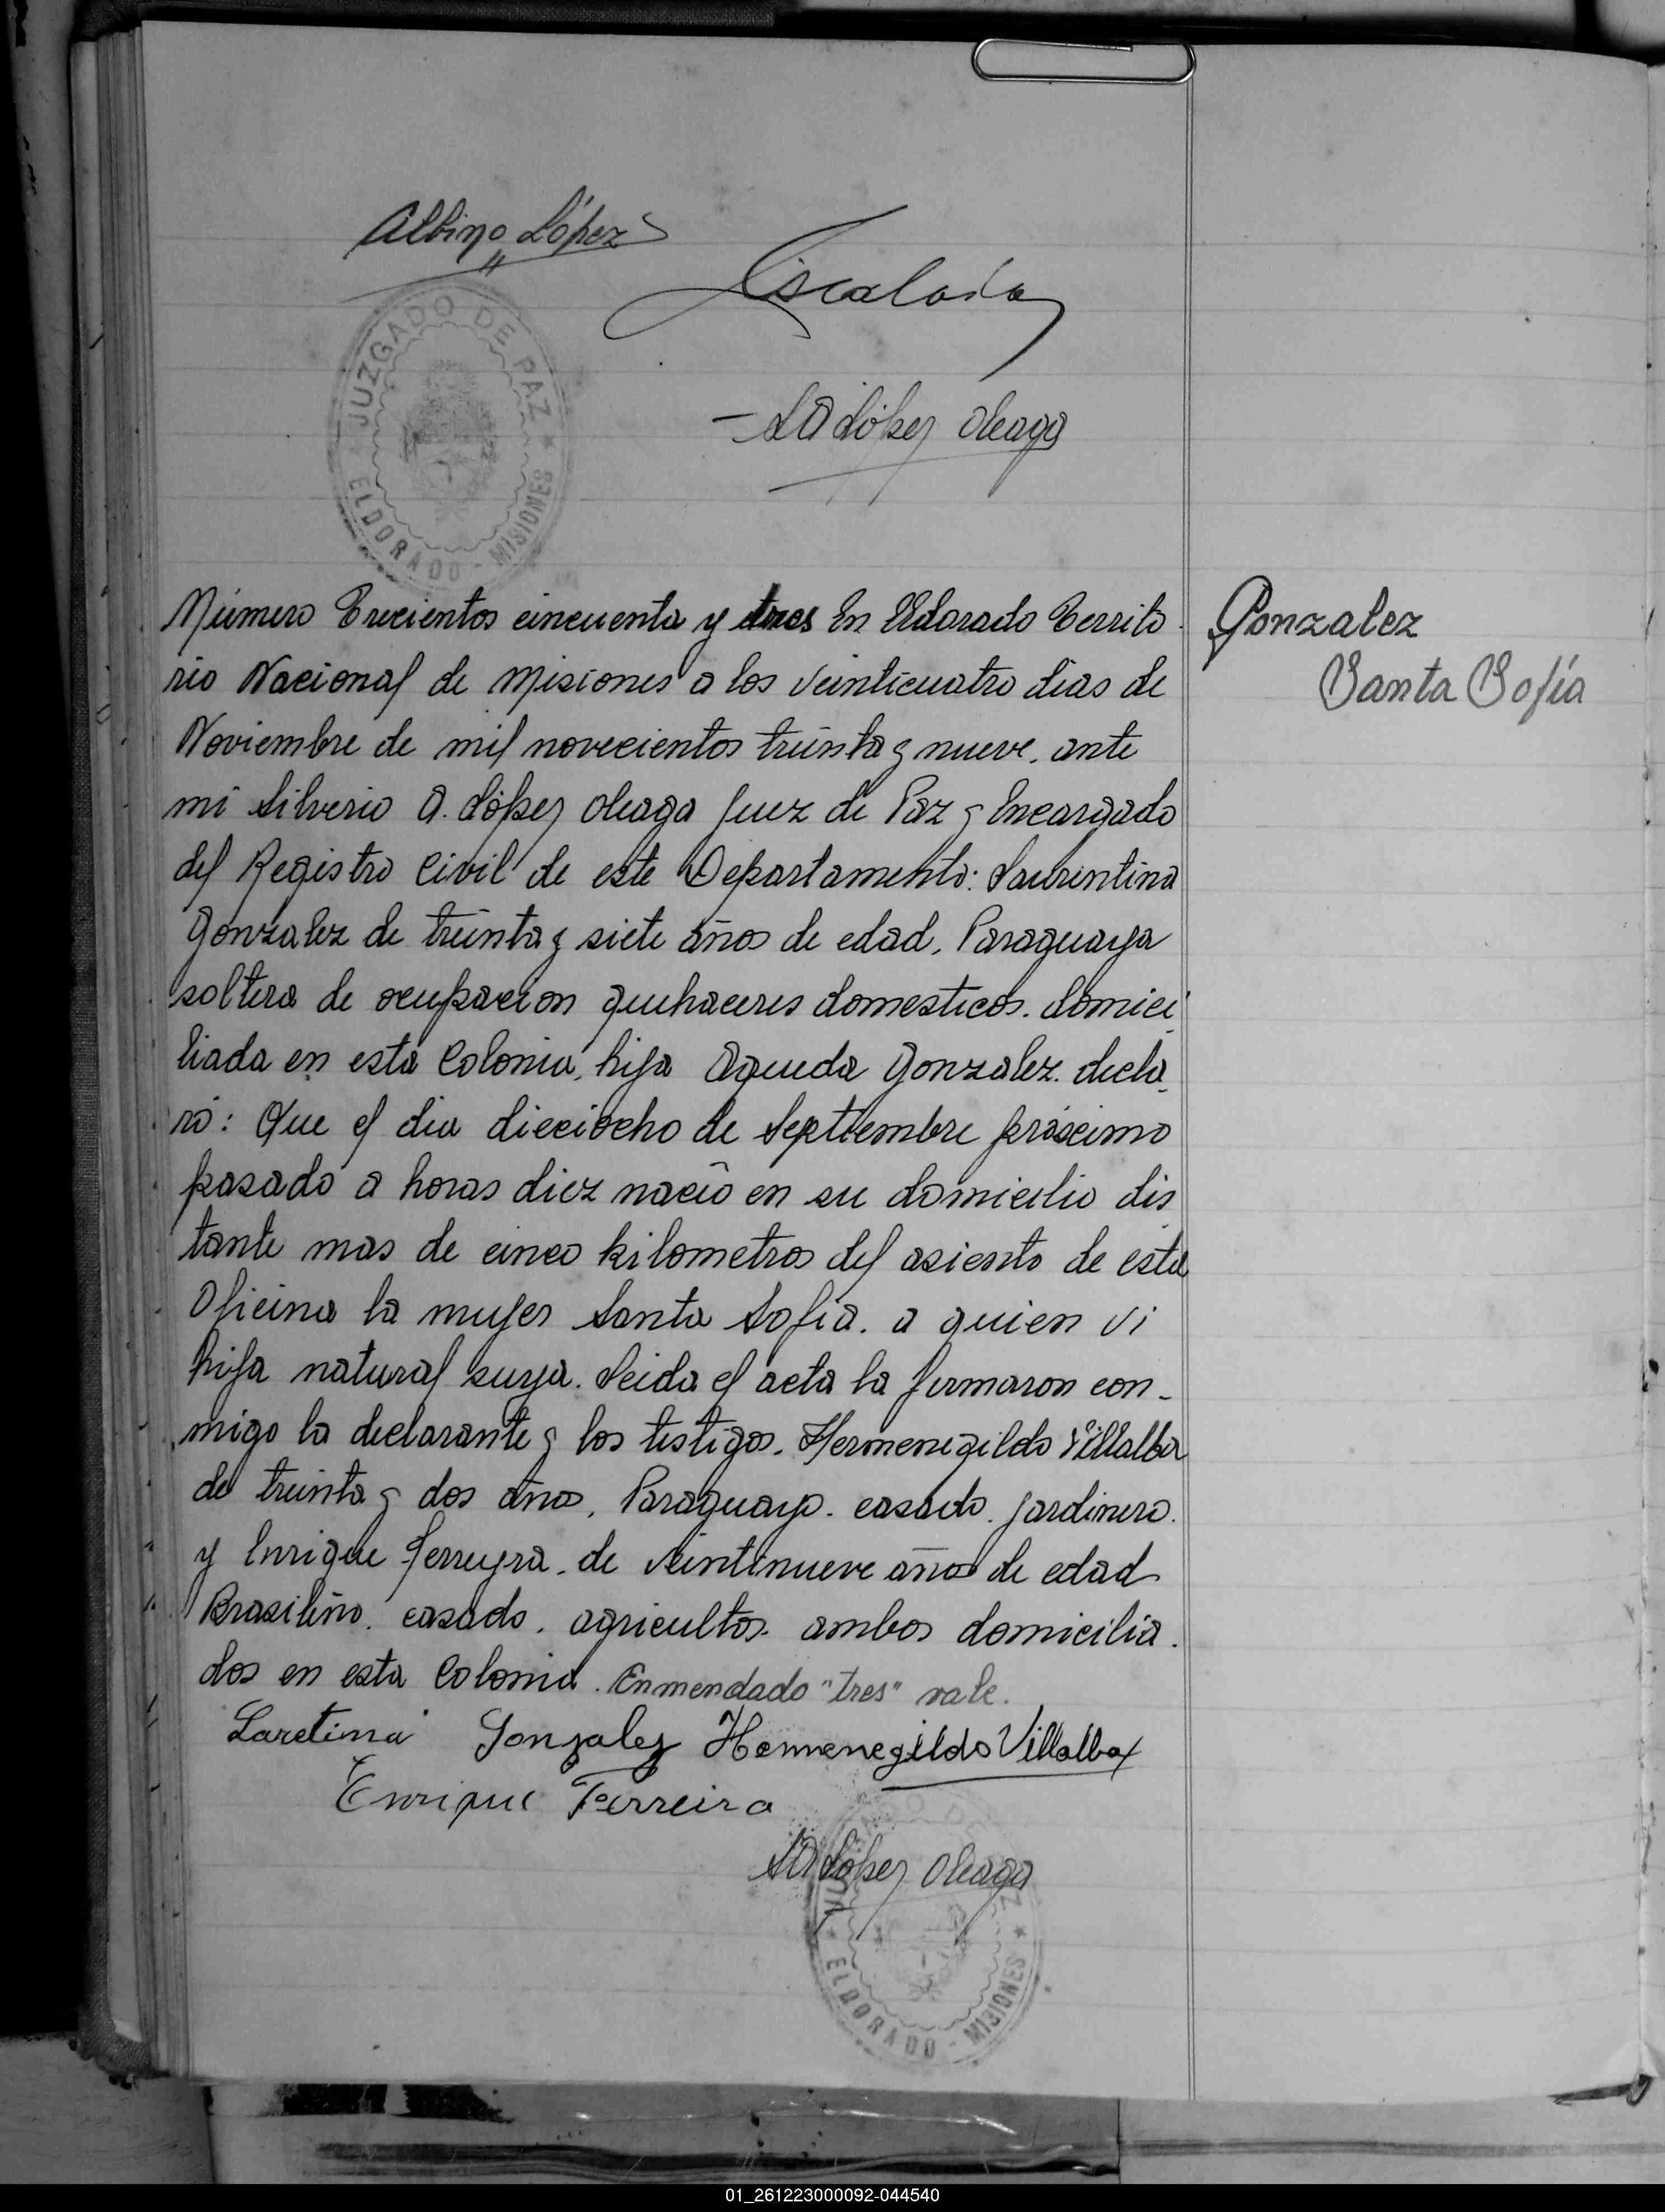 Albino López
Escalada
S A López Oleaga
JUZGADO DE PAZ
ELDORADO - MISIONES
Número Trecientos cincuenta y tres En Eldorado Territo
rio Nacional de Misiones a los veinticuatro dias de
Noviembre de mil novecientos treinta y nueve. ante
mi Silverio A. López Oleaga Juez de Paz y Encargado
del Registro Civil de este Departamento: Laurentina
Gonzalez de treinta y siete años de edad, Paraguaya
soltera de ocupacion quehaceres domesticos. domici
liada en esta Colonia, hija Agueda Gonzalez. decla
ró: Que el dia dieciocho de Septiembre próximo
pasado a horas diez nació en su domicilio dis
tante mas de cinco kilometros del asiento de esta
Oficina la mujer Santa Sofia. a quien vi
hija natural suya. Leida el acta la firmaron con-
migo la declarante y los testigos. Hermenegildo Villalba
de treinta y dos años, Paraguayo. casado. jardinero.
y Enrique Ferreyra. de veintinueve años de edad
Brasileño. casado. agricultor. ambos domicilia.
dos en esta Colonia. Enmendado "tres" vale.
Laretina Gonzalez Hermenegildo Villalba
Enrique Ferreira
S A López Oleaga
ELDORADO - MISIONES
Gonzalez
Santa Sofía
01_261223000092-044540